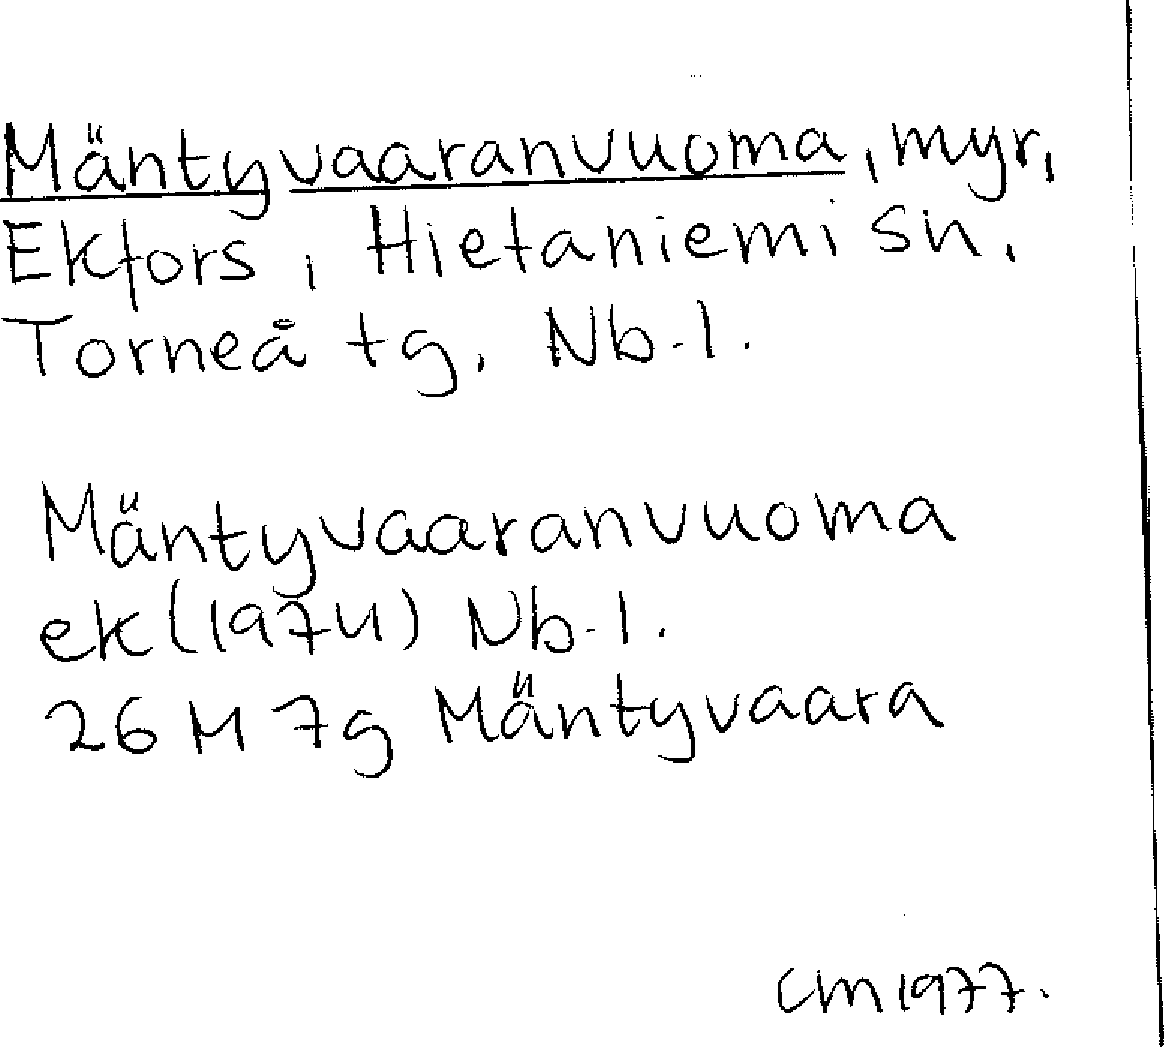 Mäntyvaaranvuoma, myr,
Ekfors, Hietaniemi sn.
Torneå tg. Nb.l.
Mäntyvaaranvuoma
ek (1974) Nb.l.
26 M 7g Mäntyvaara
CM 1977.